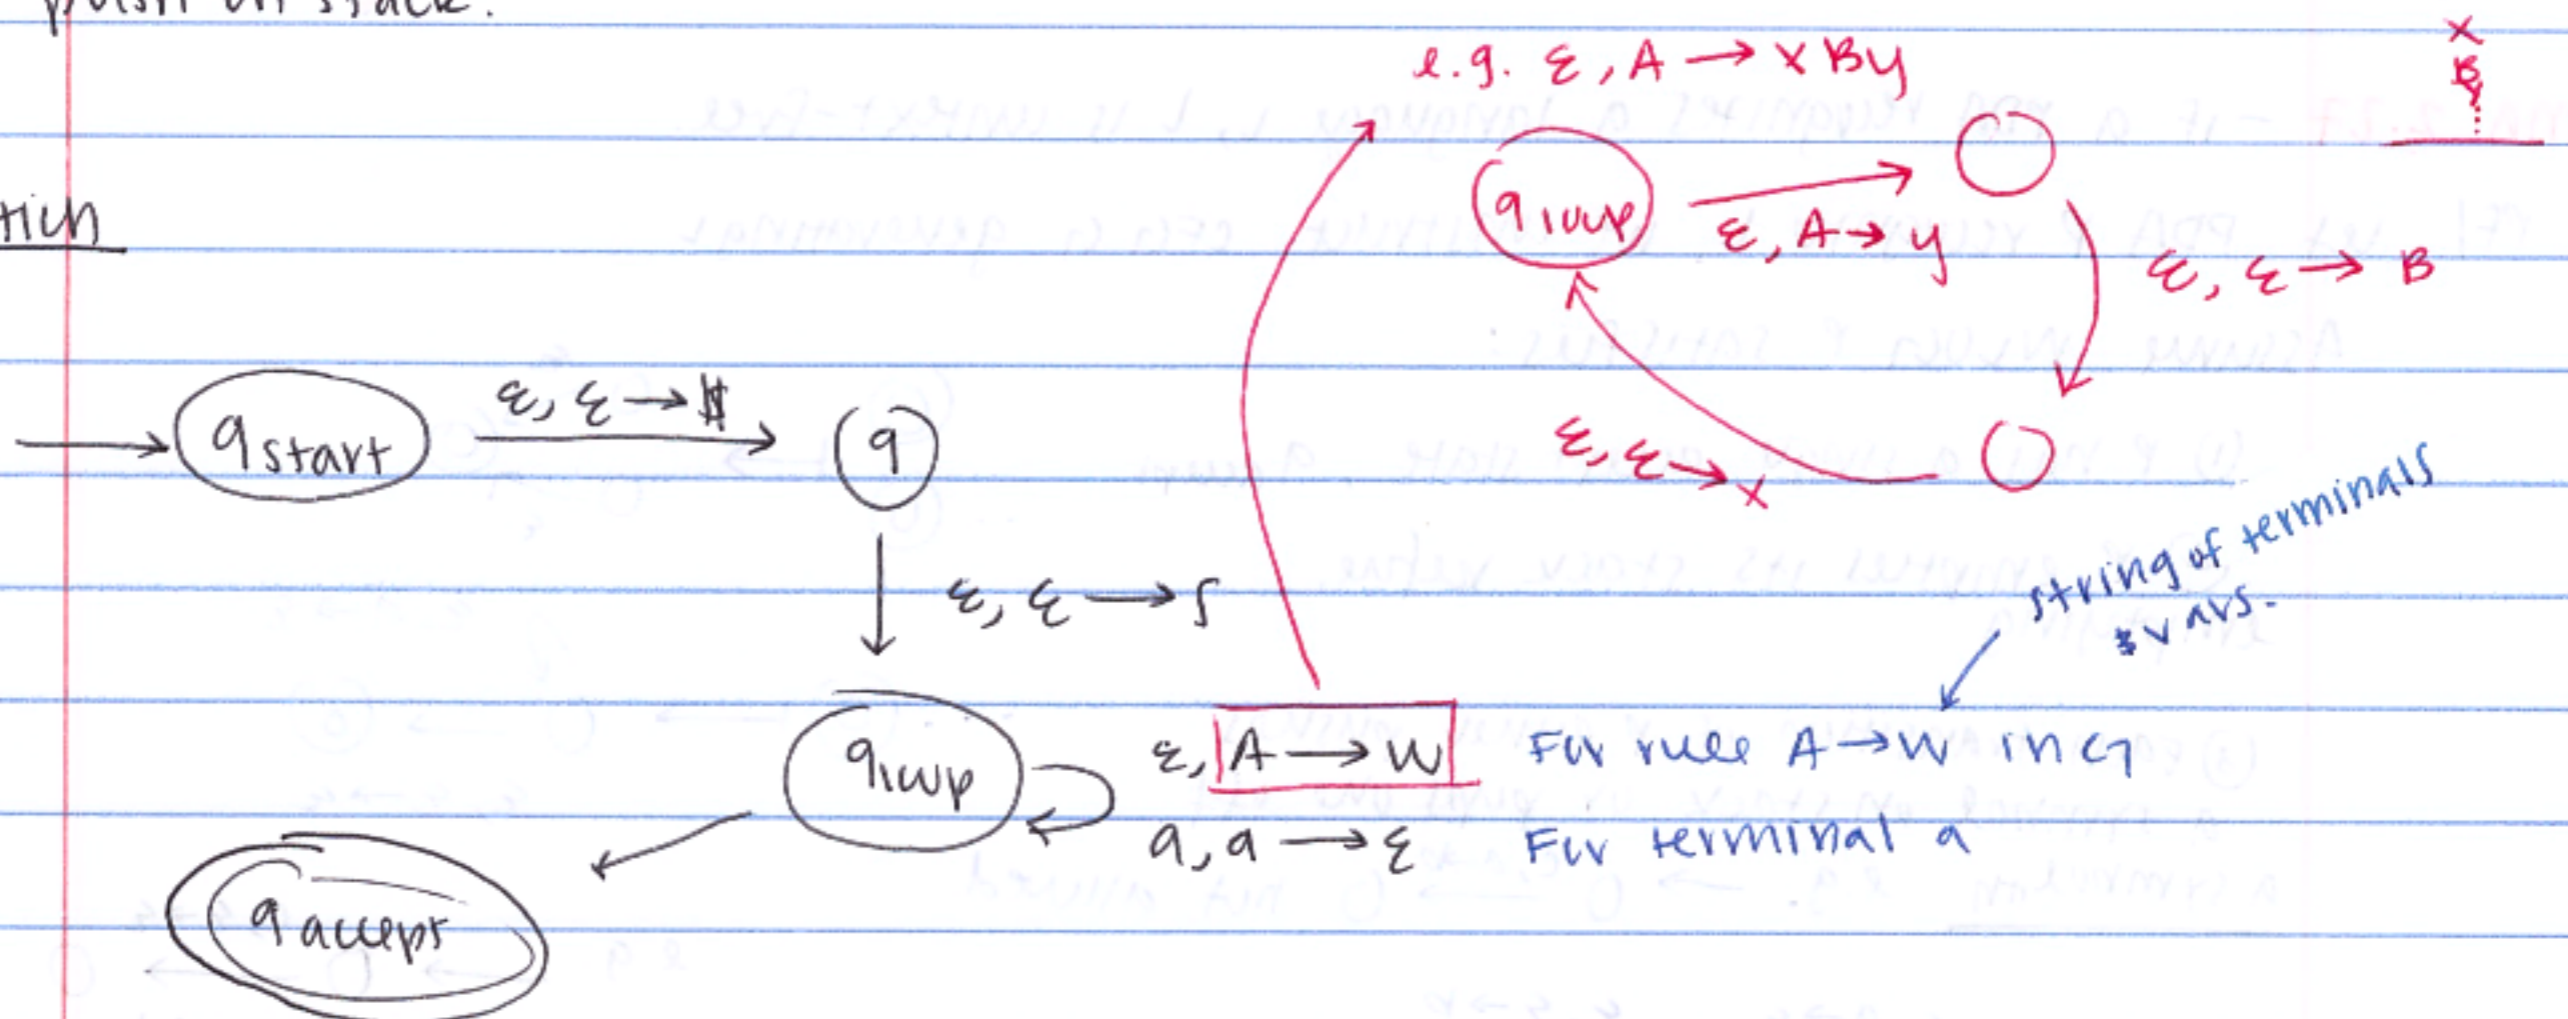 push on stack.
e.g. ε, A → x B y
x
B
y
q loop
ε, A → y
ε, ε → B
q start
ε, ε → $
q
ε, ε → x
string of terminals
& vars.
ε, ε → S
q loop
ε, A → w For rule A → w in G
a, a → ε For terminal a
q accept